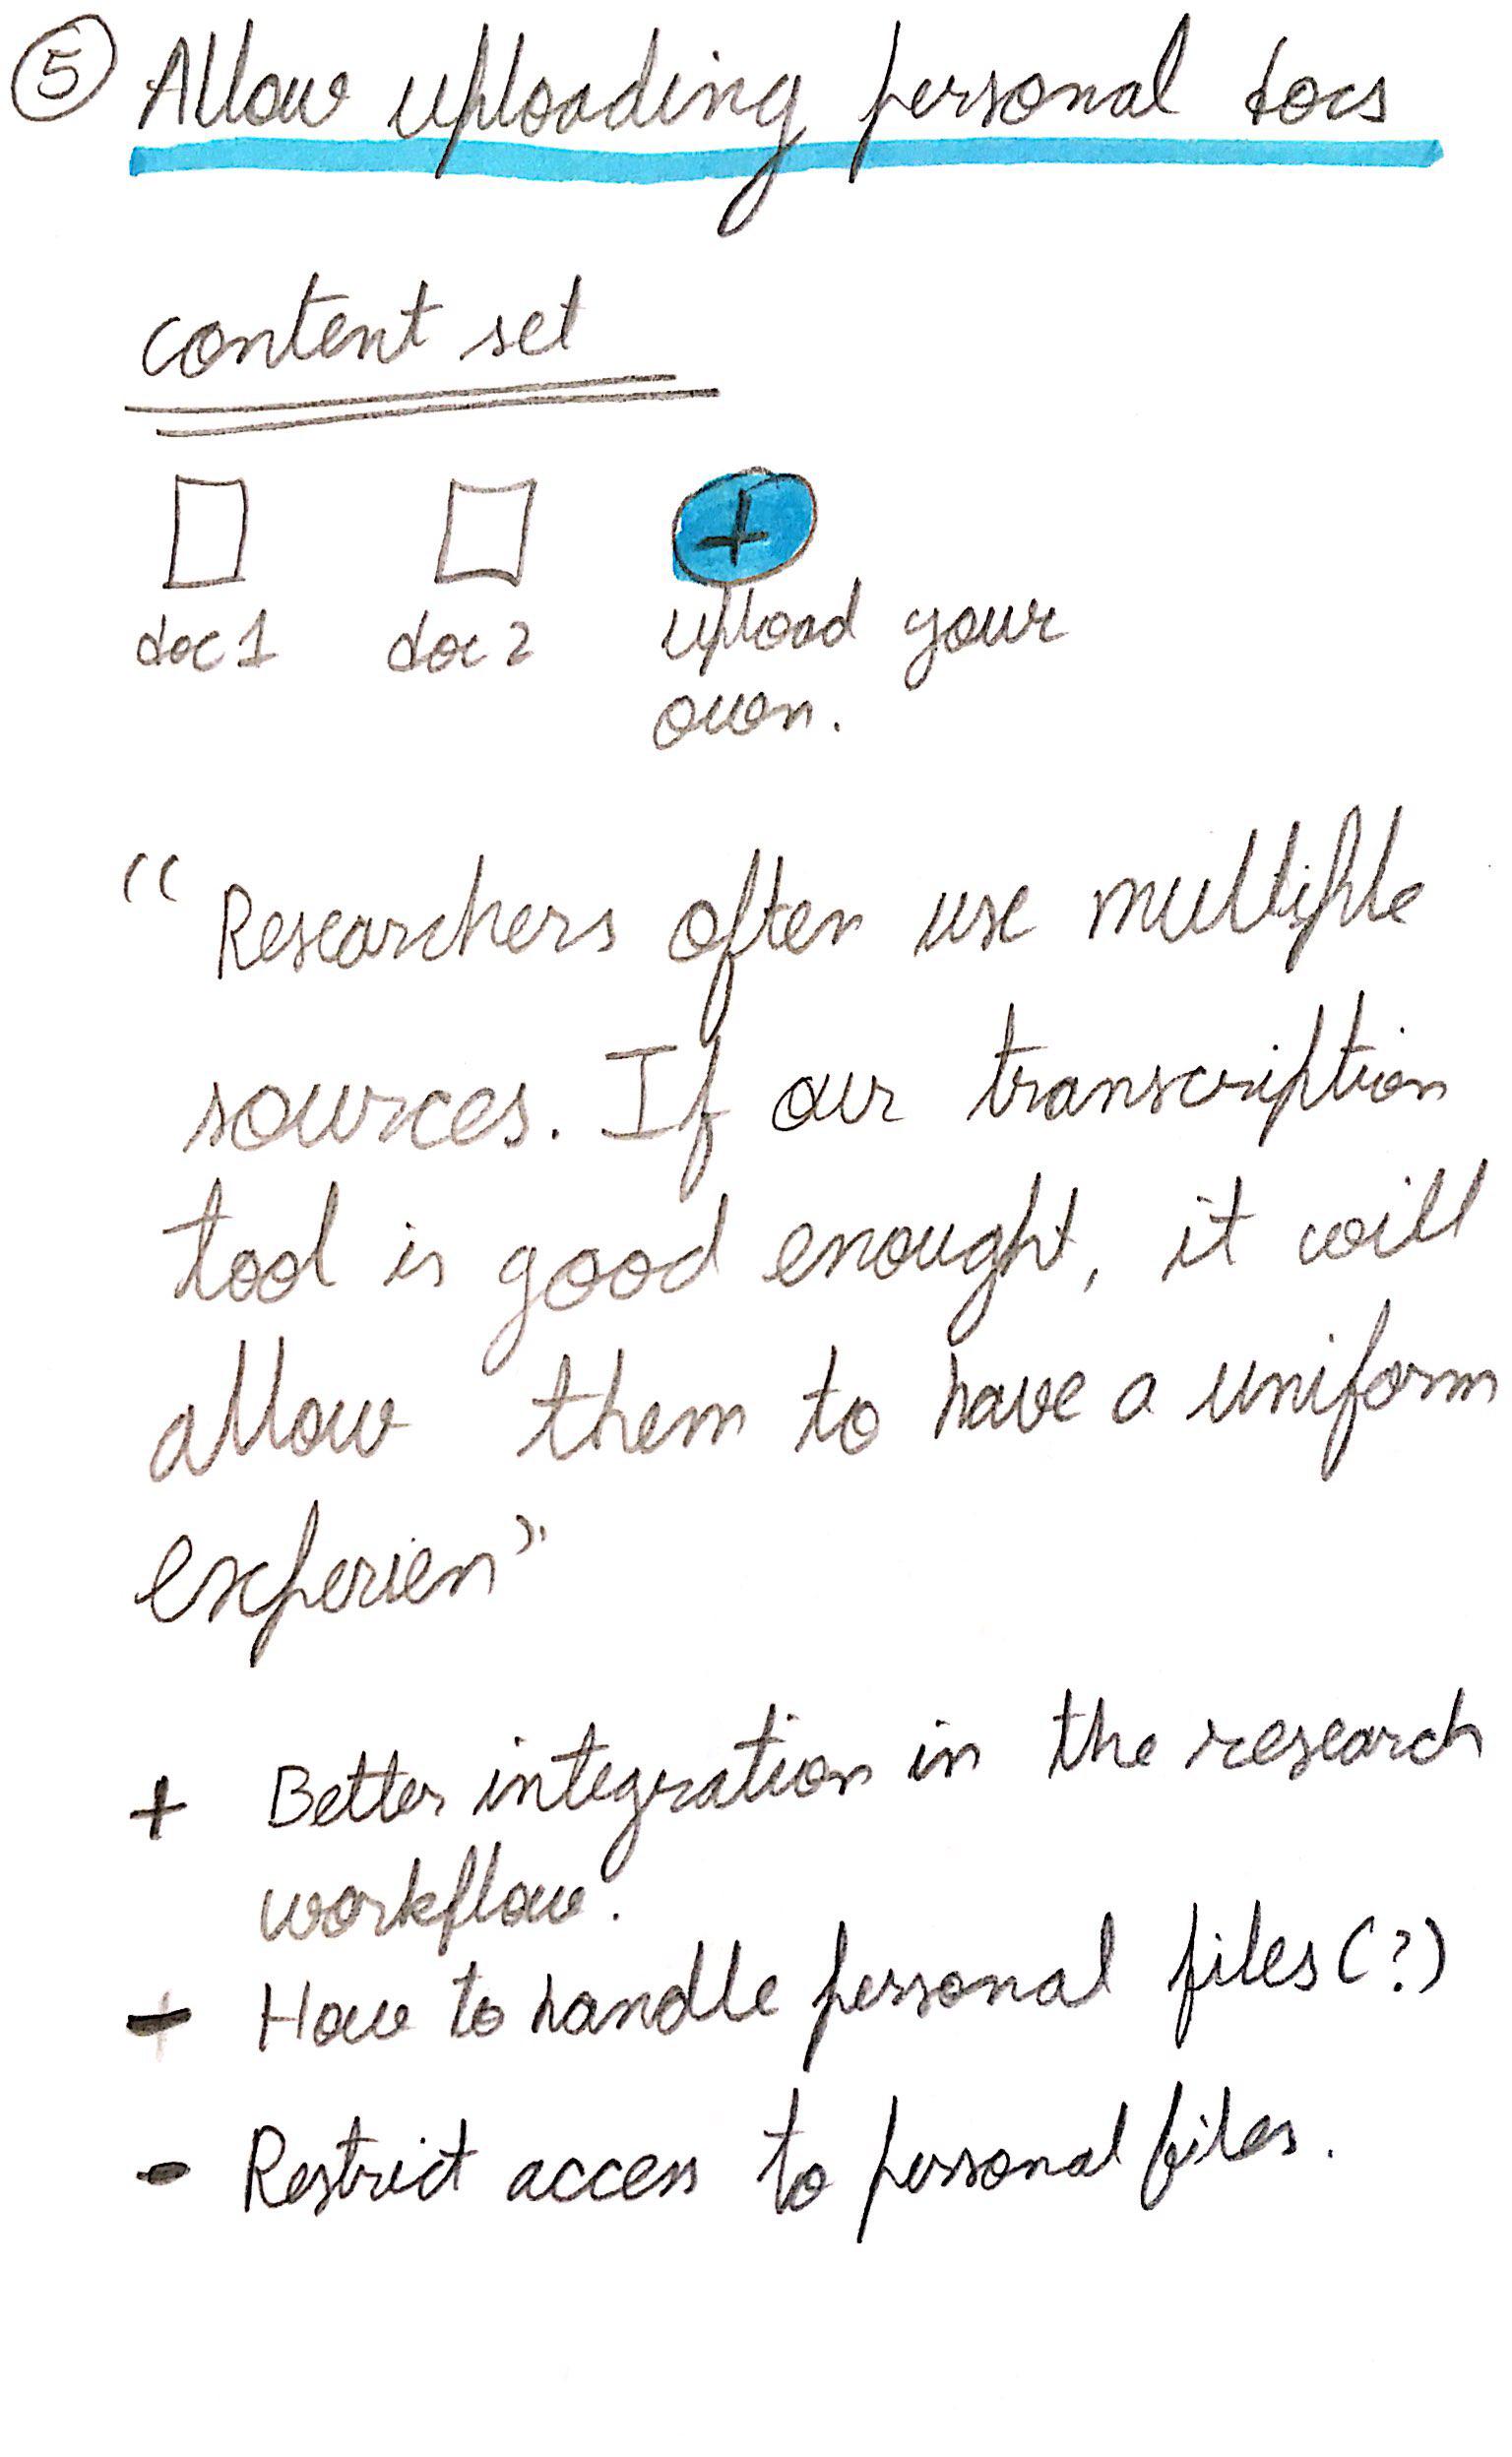 5 Allow uploading personal docs
content set
+
doc 1 doc 2 upload your
own.
“Researchers often use multiple
sources. If our transcription
tool is good enought, it will
allow them to have a uniform
experien”
+ Better integration in the research
workflow.
- How to handle personal files (?)
- Restrict access to personal files.